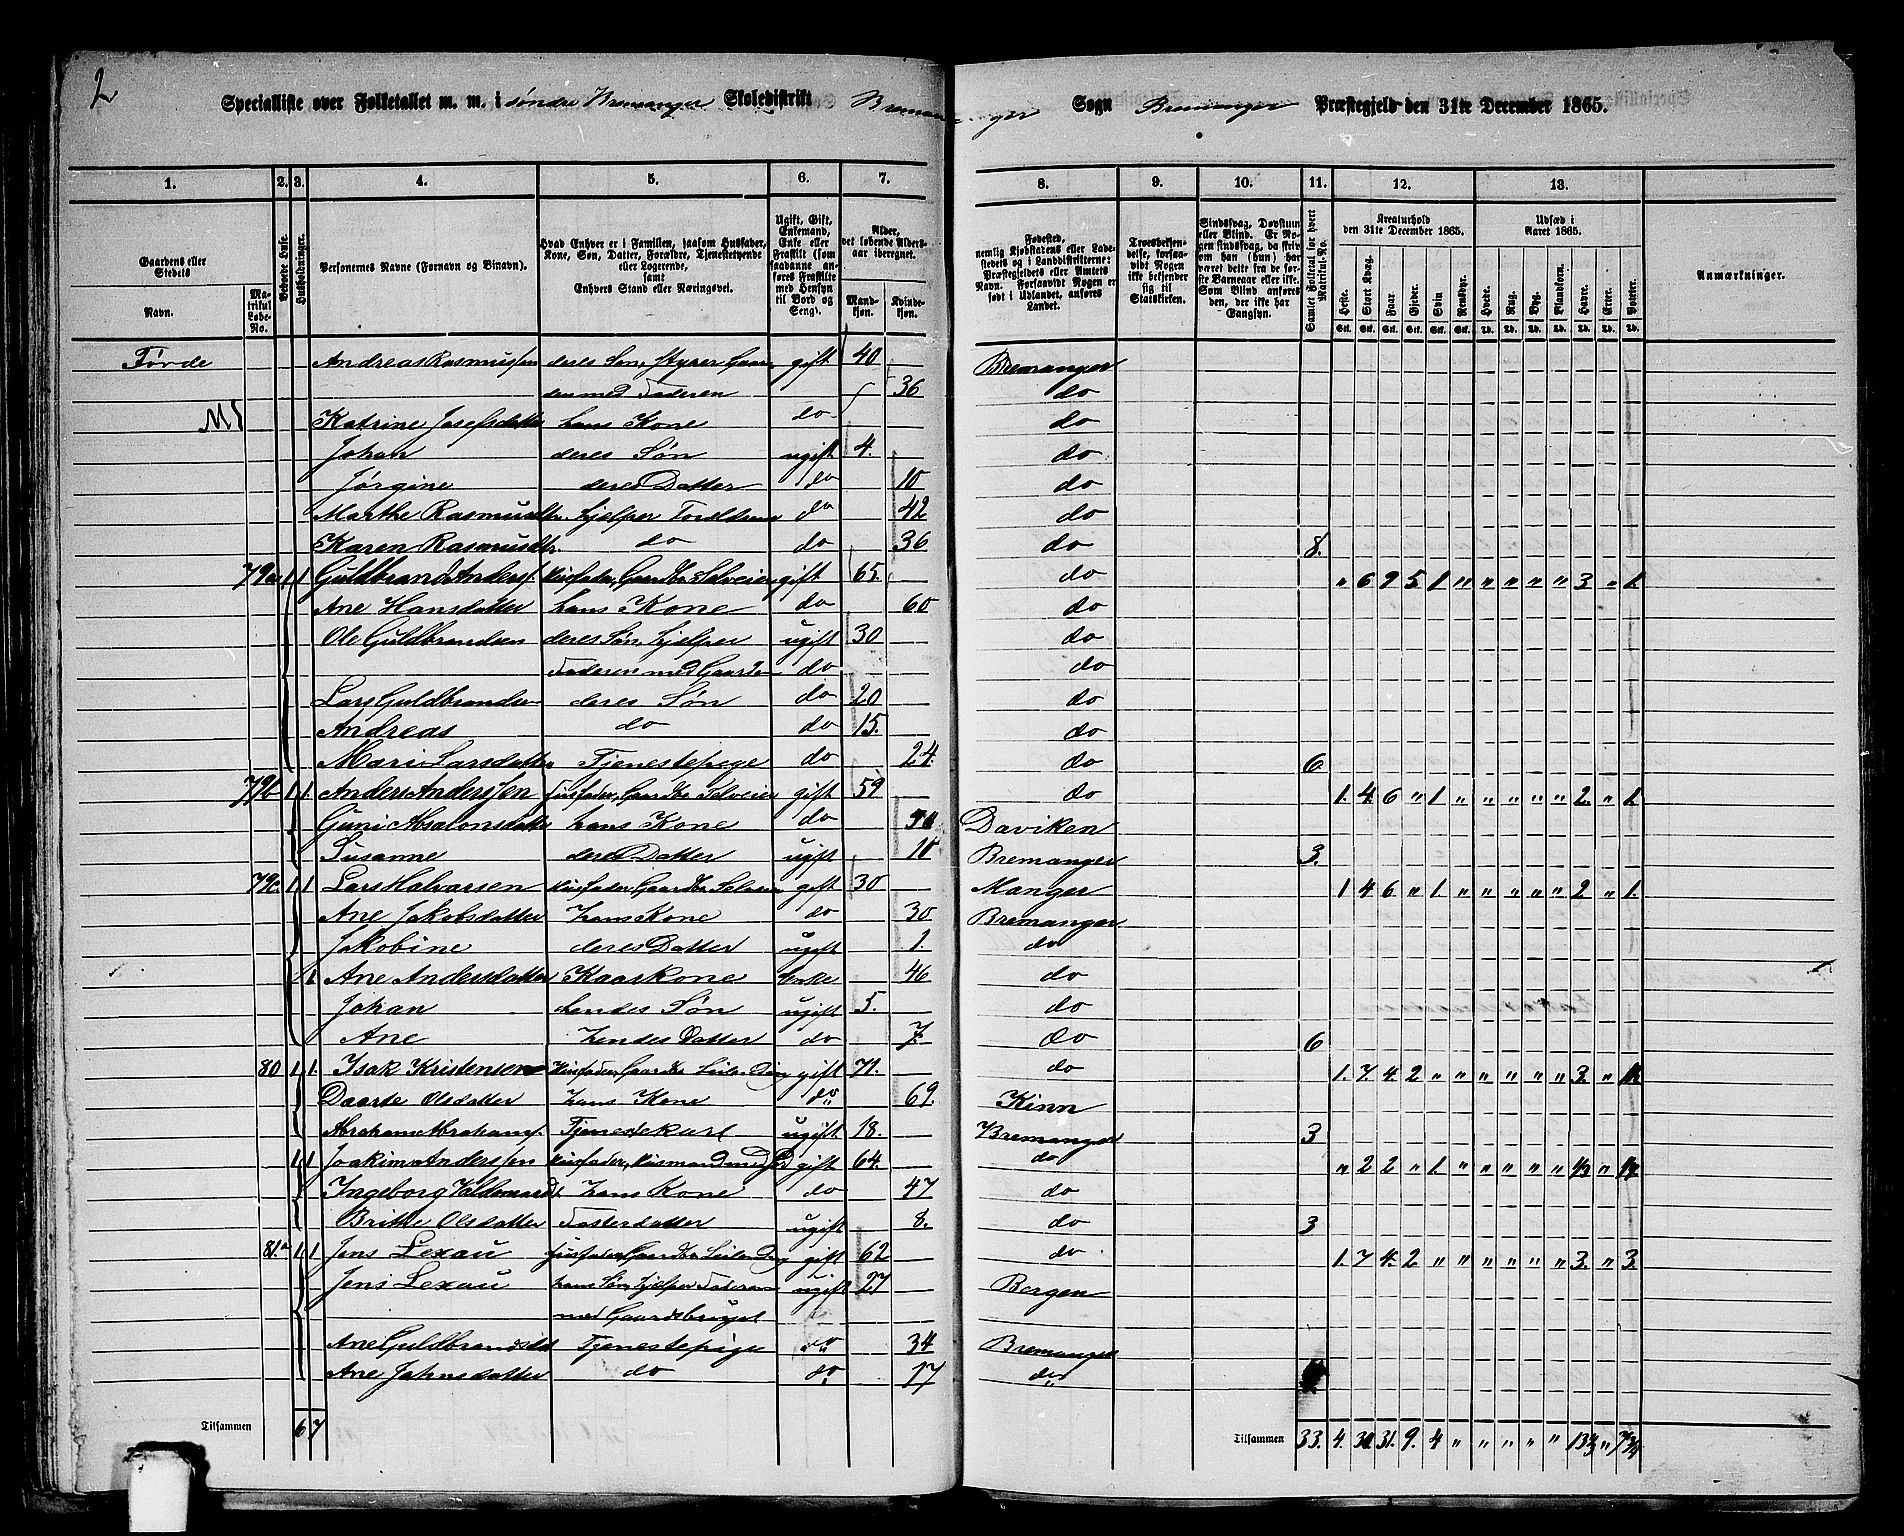 2
Specialliste over Folketallet m. m. i søndre Bremanger Skoledistrikt Bremanger Sogn Bremanger Præstegjeld den 31te December 1865.
1. 2. 3. 4. 5. 6. 7. 8. 9. 10. 11. 12. 13.
Gaardens eller Stedets
Navn.
Matrikul Løbe-No.
Beboede Huse.
Husholdninger.
Personernes Navne (Fornavn og Binavn).
Hvad Enhver er i Familien, saasom Husfader, Kone, Søn, Datter, Forældre, Tjenestetyende eller Logerende, samt Enhvers Stand eller Næringsvei.
Ugift, Gift, Enkemand, Enke eller Fraskilt (som saadanne anføres Fraskilte med Hensyn til Bord og Seng).
Alder, det løbende Alders-aar iberegnet.
Mand-kjøn. Kvinde-kjøn.
Fødested, nemlig Kjøbstadens eller Ladestedets og i Landdistrikterne: Præstegjeldets eller Amtets Navn. Forsaavidt Nogen er født i Udlandet, anføres Landet.
Troesbekjendelse, forsaavidt Nogen ikke bekjender sig til Statskirken.
Sindssvag, Døvstum eller Blind. Er Nogen sindssvag, da skriv om han (hun) har været dette fra de første Barneaar eller ikke. Som Blind anføres den, der ikke har Gangsyn.
Samlet Folketal for hvert Matrikul-No.
Kreaturhold den 31te December 1865.
Udsæd i Aaret 1865.
Heste. Stort Kvæg. Faar. Gjeder. Svin. Rensdyr. Hvede. Rug. Byg. Blandkorn. Havre. Erter. Poteter.
Anmærkninger.
Førde Andreas Rasmussen deres Søn, styrer Gaar gift 40 Bremanger
den med Faderen 36 do
Katrine Josefsdatter hans Kone do do
Johan deres Søn ugift 4. do
Jørgine deres Datter do 10 do
Marthe Rasmusdtr. hjelper Forældrene do 42 do
Karen Rasmusdtr. do do 36 do 8.
79a 1 1 Guldbrand Anders. Husfader, Gaardbr. Selveier gift 65. do " 6 9 5 1 " " " " " 3 " 1.
Ane Hansdatter hans Kone do 60 do
Ole Guldbrandsen deres Søn, hjelper ugift 30 do
Faderen med Gaarden do do
Lars Guldbrandsen deres Søn do 20 do
Andreas do do 15. do
Mari Larsdatter Tjenestepige do 24. do 6
79b 1 1. Anders Anderssen Husfader, Gaardbr. Selveier gift 59 do 1. 4 6 " 1 " " " " " 2. " 1.
Guni Absalonsdatter hans Kone do Daviken
Susanne deres Datter ugift 10 Bremanger 3.
79c 1 1 Lars Halvarsen Husfader, Gaardbr. Selveier gift 30 Manger 1 4 6 " 1 " " " " " 2 " 1.
Ane Jakobsdatter hans Kone do 30 Bremanger
Jakobine deres Datter ugift 1. do
1 Ane Andersdatter Kaarkone Enke 46 do
Johan hendes Søn ugift 5. do
Ane hendes Datter do 7. do 6
80 1 1. Isak Kristensen Husfader, Gaardbr. Leilending gift 71. do 1. 7. 4. 2 " " " " " " 3. "
Daarte Olsdatter hans Kone do 69. Kinn
Abraham Abrahams. Tjenestekarl ugift 18. Bremanger 3
1 1 Joakim Anderssen Husfader, Husmand med Jord gift 64. do " 2 2 " 1 " " " " " 1/2 " 1/2
Ingeborg Valdemarsd. hans Kone do 47 do
Britte Olsdatter Fosterdatter ugift 8. do 3
81a 1 1 Jens Lexau Husfader, Gaardbr. Leilending gift 62 do 1. 7 4. 2 " " " " " " 3. " 3.
Jens Lexau hans Søn, hjelper Faderen ugift 27 Bergen
med Gaardsbruget
Ane Guldbrandsdd Tjenestepige do 34 Bremanger
Ane Johnsdatter do do 17 do
Tilsammen 6 7 Tilsammen 33. 4. 30 31. 9. 4 " " " " " 13 1/2 "